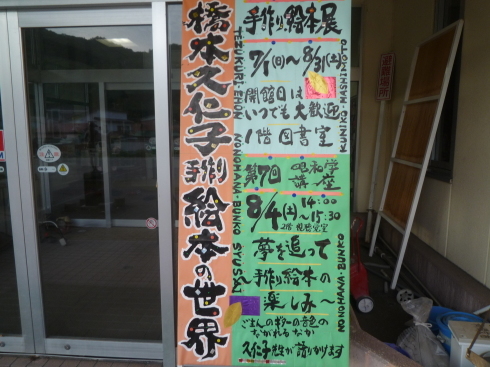 橋本久仁子手作り絵本の世界
TEZUKURI EHON
KONOHANA-BUNKO SYUSAI
手作り絵本展
7/1(日)〜8/31(土)
開館日は
いつでも大歓迎
1階図書室
KUNIKO・HASHIMOTO
第7回 昭和学講座
8/4(土) 14:00
〜15:30
2階視聴覚室
夢を追って
〜手作り絵本の
楽しみ〜
ごまんのギターの音色の
ながれるなか
久仁子先生が語りかけます
KONOHANA-BUNKO
避難場所